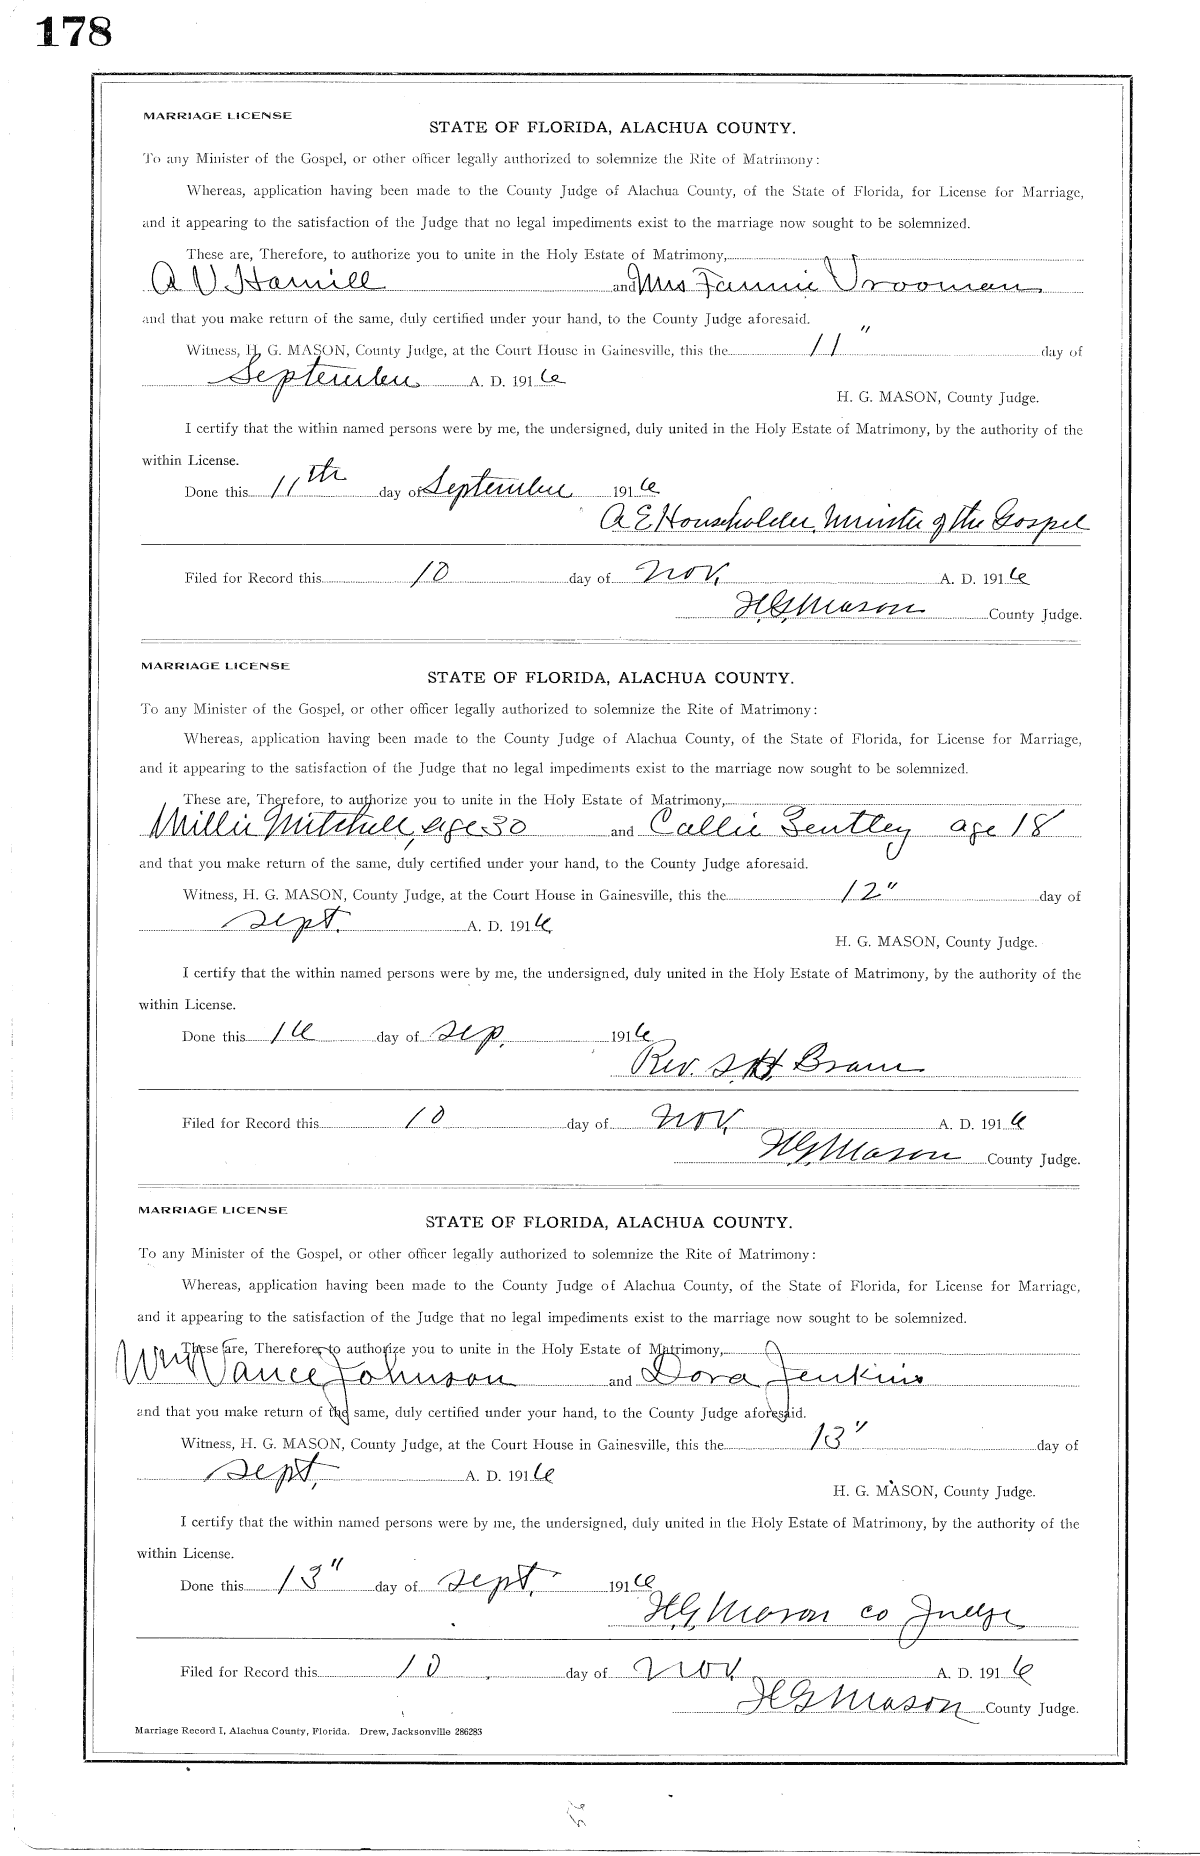 178
MARRIAGE LICENSE
STATE OF FLORIDA, ALACHUA COUNTY.
To any Minister of the Gospel, or other officer legally authorized to solemnize the Rite of Matrimony:
Whereas, application having been made to the County Judge of Alachua County, of the State of Florida, for License for Marriage,
and it appearing to the satisfaction of the Judge that no legal impediments exist to the marriage now sought to be solemnized.
These are, Therefore, to authorize you to unite in the Holy Estate of Matrimony,
A V. Hamill and Mrs Fannie Vrooman
and that you make return of the same, duly certified under your hand, to the County Judge aforesaid.
Witness, H. G. MASON, County Judge, at the Court House in Gainesville, this the 11" day of
September A. D. 1916
H. G. MASON, County Judge.
I certify that the within named persons were by me, the undersigned, duly united in the Holy Estate of Matrimony, by the authority of the
within License.
Done this 11th day of September 1916
A E Householder, Minister of the Gospel
Filed for Record this 10 day of Nov, A. D. 1916
H.G. Mason County Judge.
MARRIAGE LICENSE
STATE OF FLORIDA, ALACHUA COUNTY.
To any Minister of the Gospel, or other officer legally authorized to solemnize the Rite of Matrimony:
Whereas, application having been made to the County Judge of Alachua County, of the State of Florida, for License for Marriage,
and it appearing to the satisfaction of the Judge that no legal impediments exist to the marriage now sought to be solemnized.
These are, Therefore, to authorize you to unite in the Holy Estate of Matrimony,
Millie Mitchell, age 30 and Callie Bentley age 18
and that you make return of the same, duly certified under your hand, to the County Judge aforesaid.
Witness, H. G. MASON, County Judge, at the Court House in Gainesville, this the 12" day of
Sept. A. D. 1916
H. G. MASON, County Judge.
I certify that the within named persons were by me, the undersigned, duly united in the Holy Estate of Matrimony, by the authority of the
within License.
Done this 16 day of Sep. 1916
Rev. S. H.
Filed for Record this 10 day of Nov, A. D. 1916
H.G. Mason County Judge.
MARRIAGE LICENSE
STATE OF FLORIDA, ALACHUA COUNTY.
To any Minister of the Gospel, or other officer legally authorized to solemnize the Rite of Matrimony:
Whereas, application having been made to the County Judge of Alachua County, of the State of Florida, for License for Marriage,
and it appearing to the satisfaction of the Judge that no legal impediments exist to the marriage now sought to be solemnized.
These are, Therefore, to authorize you to unite in the Holy Estate of Matrimony,
Wm Vance Johnson and Dora Jenkins
and that you make return of the same, duly certified under your hand, to the County Judge aforesaid.
Witness, H. G. MASON, County Judge, at the Court House in Gainesville, this the 13" day of
Sept. A. D. 1916
H. G. MASON, County Judge.
I certify that the within named persons were by me, the undersigned, duly united in the Holy Estate of Matrimony, by the authority of the
within License.
Done this 13" day of Sept. 1916
H.G. Mason Co Judge
Filed for Record this 10 day of Nov. A. D. 1916
H G Mason County Judge.
Marriage Record I, Alachua County, Florida. Drew, Jacksonville 286283